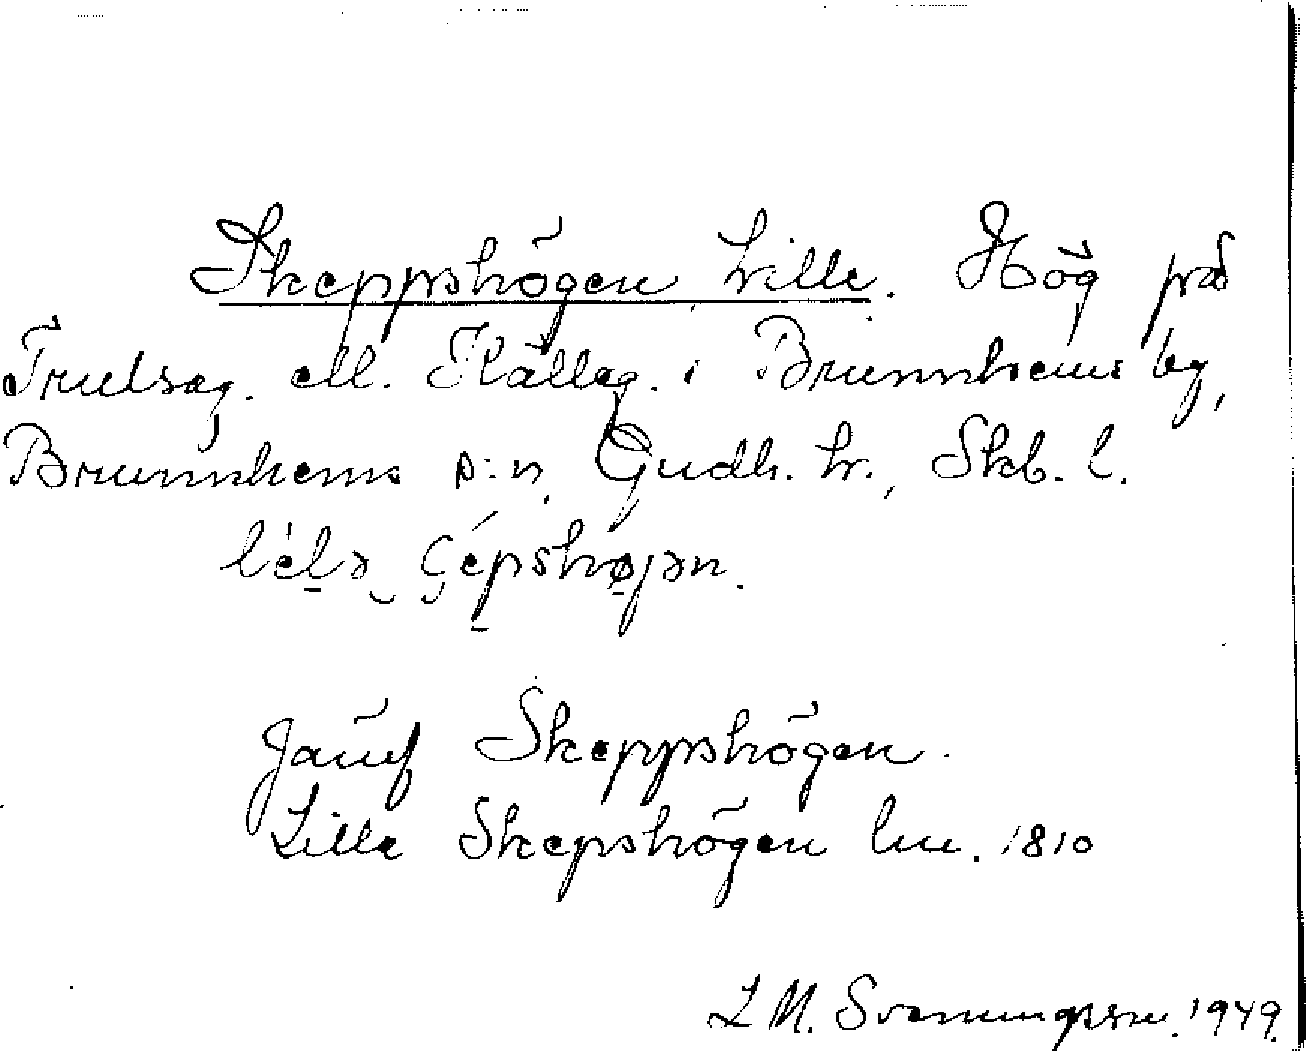 Skeppshögen, Lille. Hög på
Trulsag. ell. Källag. i Brunnhems by,
Brunnhems s:n, Gudh. hr., Skb. l.
lélə çépshøjən.
Jämf Skeppshögen.
Lilla Skepshögen lm. 1810
L M. Svenungsson. 1949.